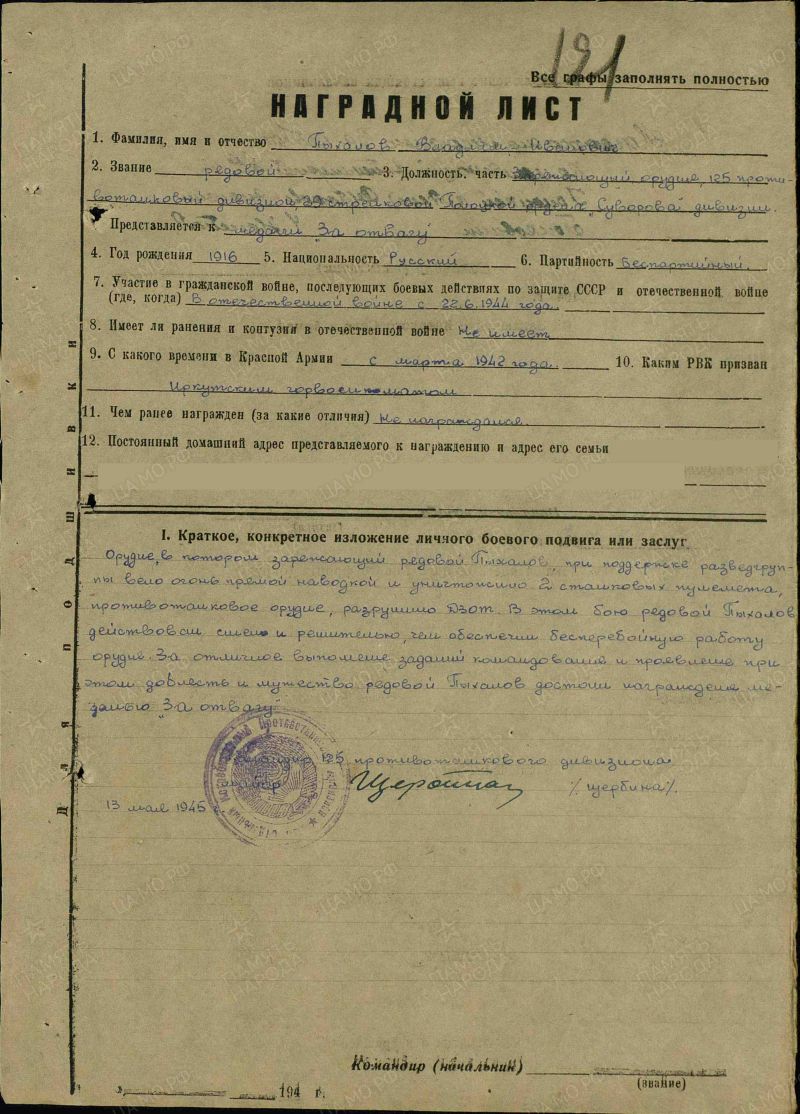 121
Все графы заполнять полностью
НАГРАДНОЙ ЛИСТ
1. Фамилия, имя и отчество Пыхалов Иванович
2. Звание редовой 3. Должность, часть Заряжающий орудие, 125 проти-
вотанковый дивизион 39 стрелковой ордена "Суворова" дивизии.
Представляется к медали "За отвагу"
4. Год рождения 1916 5. Национальность Русский 6. Партийность Беспартийный.
7. Участие в гражданской войне, последующих боевых действиях по защите СССР и отечественной войне
(где, когда) В отечественной войне с 22.6.1944 года.
8. Имеет ли ранения и контузии в отечественной войне Не имеет
9. С какого времени в Красной Армии с марта 1942 года. 10. Каким РВК призван
Иркутским горвоенкоматом
11. Чем ранее награжден (за какие отличия) Не награждался.
12. Постоянный домашний адрес представляемого к награждению и адрес его семьи
Для подшивки
I. Краткое, конкретное изложение личного боевого подвига или заслуг
Орудие, в котором заряжающий редовой Пыхалов, при поддержке разведгруп-
пы вело огонь прямой наводкой и уничтожило 2 станковых пулемета,
противотанковое орудие, разрушило ДЗОТ. В этом бою редовой Пыхалов
действовал смело и решительно, чем обеспечил бесперебойную работу
орудие. За отличное выполнение заданий командование и проявление при
этом доблесть и мужество редовой Пыхалов достоин награждение ме-
далью "За отвагу"
Командир 125 противотанкового дивизиона
майор Щербина /Щербина/.
13 мая 1945 г.
Командир (начальник)
(звание)
194 г.
ЦАМО.РФ
ПАМЯТЬ НАРОДА